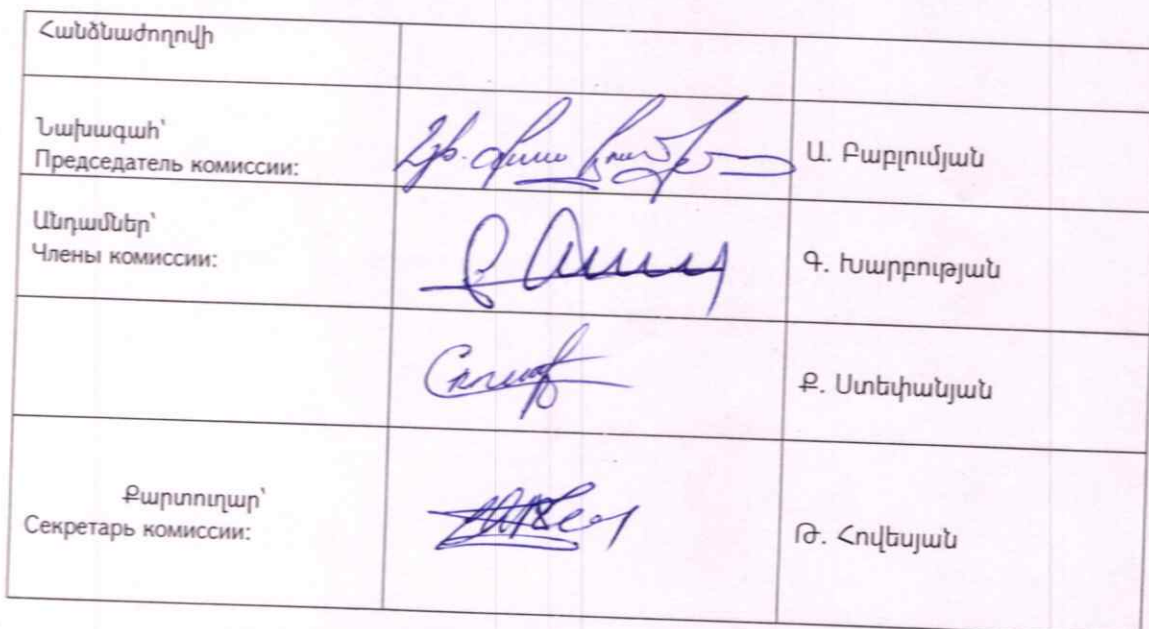 Հանձնաժողովի
Նախագահ՝
Председатель комиссии:
Ա. Բաբլումյան
Անդամներ՝
Члены комиссии:
Գ. Խարբության
Ք. Ստեփանյան
Քարտուղար՝
Секретарь комиссии:
Թ. Հովեսյան